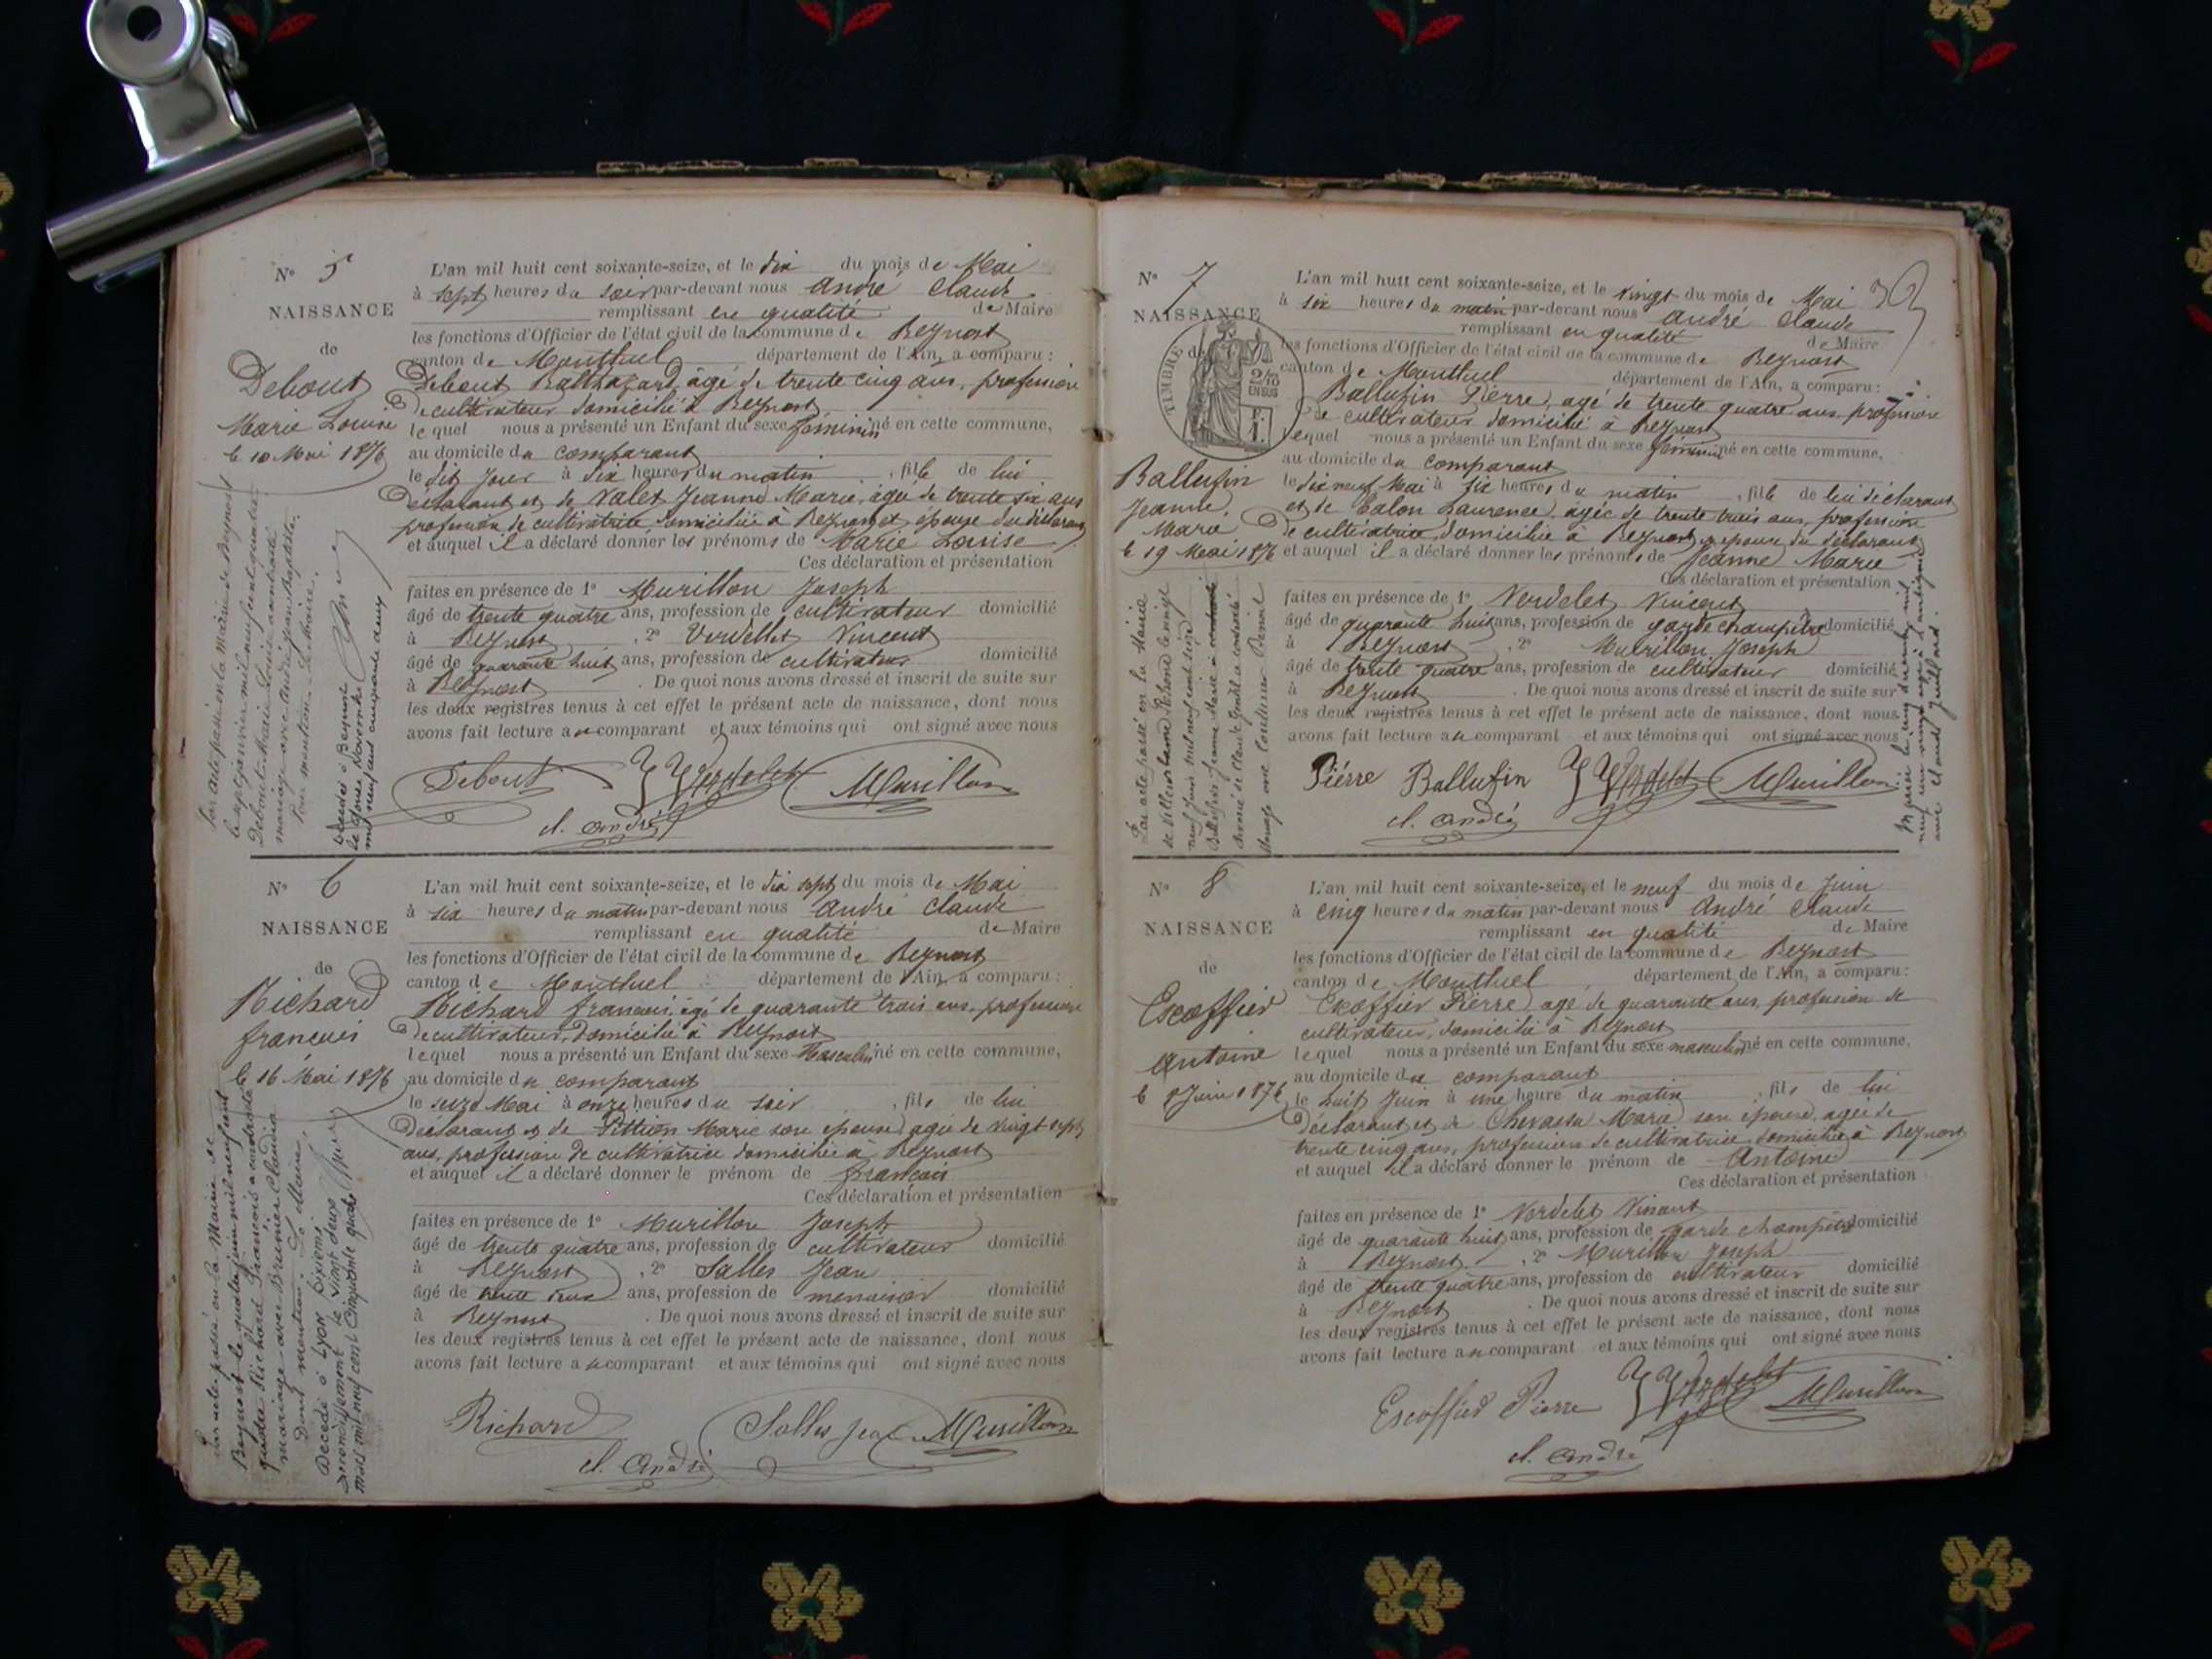 N° 5
NAISSANCE
de
Debout
Marie Louise
le 10 Mai 1876
L'an mil huit cent soixante-seize, et le dix du mois de Mai
à sept heures du soir par-devant nous André Claude
remplissant en qualité de Maire
les fonctions d'Officier de l'état civil de la commune de Beynost
canton de Montluel département de l'Ain, a comparu :
Debout Balthazard, âgé de trente cinq ans, profession
de cultivateur domicilié à Beynost
lequel nous a présenté un Enfant du sexe féminin né en cette commune,
au domicile du comparant
le dit jour à dix heures du matin, fille de lui
déclarant et de Valet Jeanne Marie, agée de trente six ans
profession de cultivatrice domiciliée à Beynost épouse du déclarant
et auquel il a déclaré donner les prénoms de Marie Louise
Ces déclaration et présentation
faites en présence de 1° Murillon Joseph
âgé de trente quatre ans, profession de cultivateur domicilié
à Beynost, 2° Verdellet Vincent
âgé de quarante huit ans, profession de cultivateur domicilié
à Beynost. De quoi nous avons dressé et inscrit de suite sur
les deux registres tenus à cet effet le présent acte de naissance, dont nous
avons fait lecture au comparant et aux témoins qui ont signé avec nous
Debout Verdelet Murillon
cl. andré
Par acte passé en la Mairie de Beynost
le sept janvier mil neuf cent quatre
Debout Marie Louise a contracté
mariage avec André Jean Baptiste.
Pour mention. Le Maire.
Décédée à Beynost
le Novembre
mil neuf cent cinquante deux
N° 6
NAISSANCE
de
Richard
françois
le 16 Mai 1876
L'an mil huit cent soixante-seize, et le dix sept du mois de Mai
à six heures du matin par-devant nous André Claude
remplissant en qualité de Maire
les fonctions d'Officier de l'état civil de la commune de Beynost
canton de Montluel département de l'Ain, a comparu :
Richard françois, âgé de quarante trois ans, profession
de cultivateur, domicilié à Beynost
lequel nous a présenté un Enfant du sexe Masculin né en cette commune,
au domicile du comparant
le seize Mai à onze heures du soir, fils de lui
déclarant et de Pittion Marie son épouse, agée de vingt sept
ans, profession de cultivatrice domiciliée à Beynost
et auquel il a déclaré donner le prénom de françois
Ces déclaration et présentation
faites en présence de 1° Murillon Joseph
âgé de trente quatre ans, profession de cultivateur domicilié
à Beynost, 2° Salles Jean
âgé de trente ans, profession de menuisier domicilié
à Beynost. De quoi nous avons dressé et inscrit de suite sur
les deux registres tenus à cet effet le présent acte de naissance, dont nous
avons fait lecture au comparant et aux témoins qui ont signé avec nous
Richard Salles Jean Murillon
cl. andré
Par acte passé en la Mairie de
Beynost le quatre juin mil neuf cent
quatre Richard François a contracté
mariage avec Brunier Claudia
Dont mention. Le Maire,
Décédé à Lyon sixième
arrondissement le vingt deux
mars mil neuf cent cinquante quatre
N° 7
NAISSANCE
TIMBRE de
2/10
EN SUS
F. 1.
Ballufin
Jeanne
Marie
le 19 Mai 1876
L'an mil huit cent soixante-seize, et le vingt du mois de Mai
à six heures du matin par-devant nous André Claude
remplissant en qualité de Maire
les fonctions d'Officier de l'état civil de la commune de Beynost
canton de Montluel département de l'Ain, a comparu :
Ballufin Pierre, agé de trente quatre ans, profession
de cultivateur domicilié à Beynost
lequel nous a présenté un Enfant du sexe féminin né en cette commune,
au domicile du comparant
le dix neuf Mai à six heures du matin, fille de lui déclarant
et de Calon Laurence, agée de trente trois ans, profession
de cultivatrice, domiciliée à Beynost, épouse du déclarant
et auquel il a déclaré donner les prénoms de Jeanne Marie
Ces déclaration et présentation
faites en présence de 1° Verdelet Vincent
âgé de quarante huit ans, profession de garde champêtre domicilié
à Beynost, 2° Murillon Joseph
âgé de trente quatre ans, profession de cultivateur domicilié
à Beynost. De quoi nous avons dressé et inscrit de suite sur
les deux registres tenus à cet effet le présent acte de naissance, dont nous
avons fait lecture au comparant et aux témoins qui ont signé avec nous
Piérre Ballufin Verdelet Murillon
cl. andré
Par acte passé en la Mairie
de Villeurbanne Rhône le vingt
neuf Juin mil neuf cent seize
N° 8
NAISSANCE
de
Escoffier
Antoine
le 8 Juin 1876
L'an mil huit cent soixante-seize, et le neuf du mois de Juin
à cinq heures du matin par-devant nous André Claude
remplissant en qualité de Maire
les fonctions d'Officier de l'état civil de la commune de Beynost
canton de Montluel, département de l'Ain, a comparu :
Escoffier Pierre, agé de quarante ans, profession de
cultivateur, domicilié à Beynost
lequel nous a présenté un Enfant du sexe masculin né en cette commune,
au domicile du comparant
le huit Juin à une heure du matin, fils de lui
déclarant et de Chevassu Marie son épouse, agée de
trente cinq ans, profession de cultivatrice, domiciliée à Beynost
et auquel il a déclaré donner le prénom de Antoine
Ces déclaration et présentation
faites en présence de 1° Verdelet Vincent
âgé de quarante huit ans, profession de garde champêtre domicilié
à Beynost, 2° Murillon Joseph
âgé de trente quatre ans, profession de cultivateur domicilié
à Beynost. De quoi nous avons dressé et inscrit de suite sur
les deux registres tenus à cet effet le présent acte de naissance, dont nous
avons fait lecture au comparant et aux témoins qui ont signé avec nous
Escoffier Pierre Verdelet Murillon
cl. andré